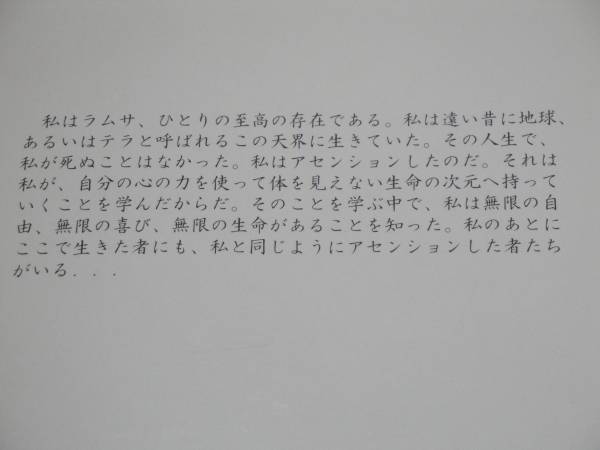 私はラムサ、ひとりの至高の存在である。私は遠い昔に地球、
あるいはテラと呼ばれるこの天界に生きていた。その人生で、
私が死ぬことはなかった。私はアセンションしたのだ。それは
私が、自分の心の力を使って体を見えない生命の次元へ持って
いくことを学んだからだ。そのことを学ぶ中で、私は無限の自
由、無限の喜び、無限の生命があることを知った。私のあとに
ここで生きた者にも、私と同じようにアセンションした者たち
がいる．．．